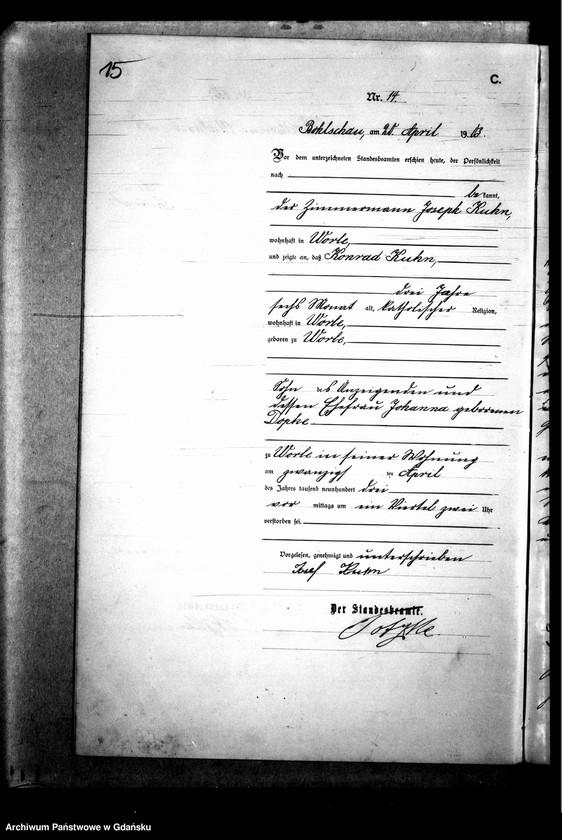 15
C.
Nr. 14.
Bohlschau, am 20. April 1903.
Vor dem unterzeichneten Standesbeamten erschien heute, der Persönlichkeit
nach
bekannt,
der Zimmermann Joseph Kuhn,
wohnhaft in Worle,
und zeigte an, daß Konrad Kuhn,
drei Jahre
sechs Monat alt, katholischer Religion,
wohnhaft in Worle,
geboren zu Worle,
Sohn des Anzeigenden und
dessen Ehefrau Johanna geborenen
Dopke
zu Worle in seiner Wohnung
am zwanzigs ten April
des Jahres tausend neunhundert drei
vor mittags um ein Viertel zwei Uhr
verstorben sei.
Vorgelesen, genehmigt und unterschrieben
Josef Kuhn
Der Standesbeamte.
Archiwum Państwowe w Gdańsku